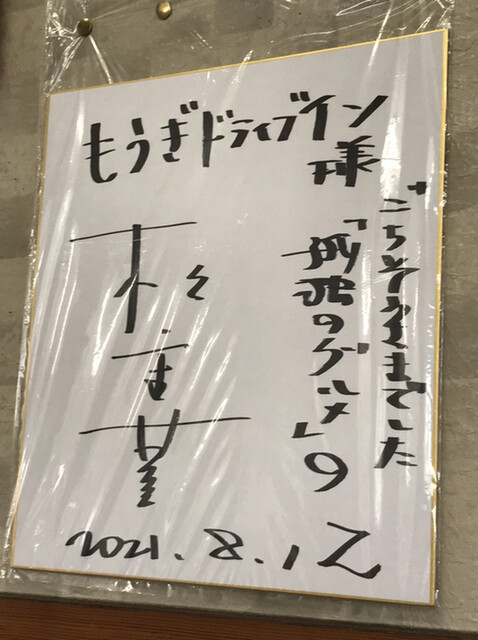 もうぎドライブイン様
ごちそうさまでした
「孤独のグルメ」9
松重豊
2021.8.12